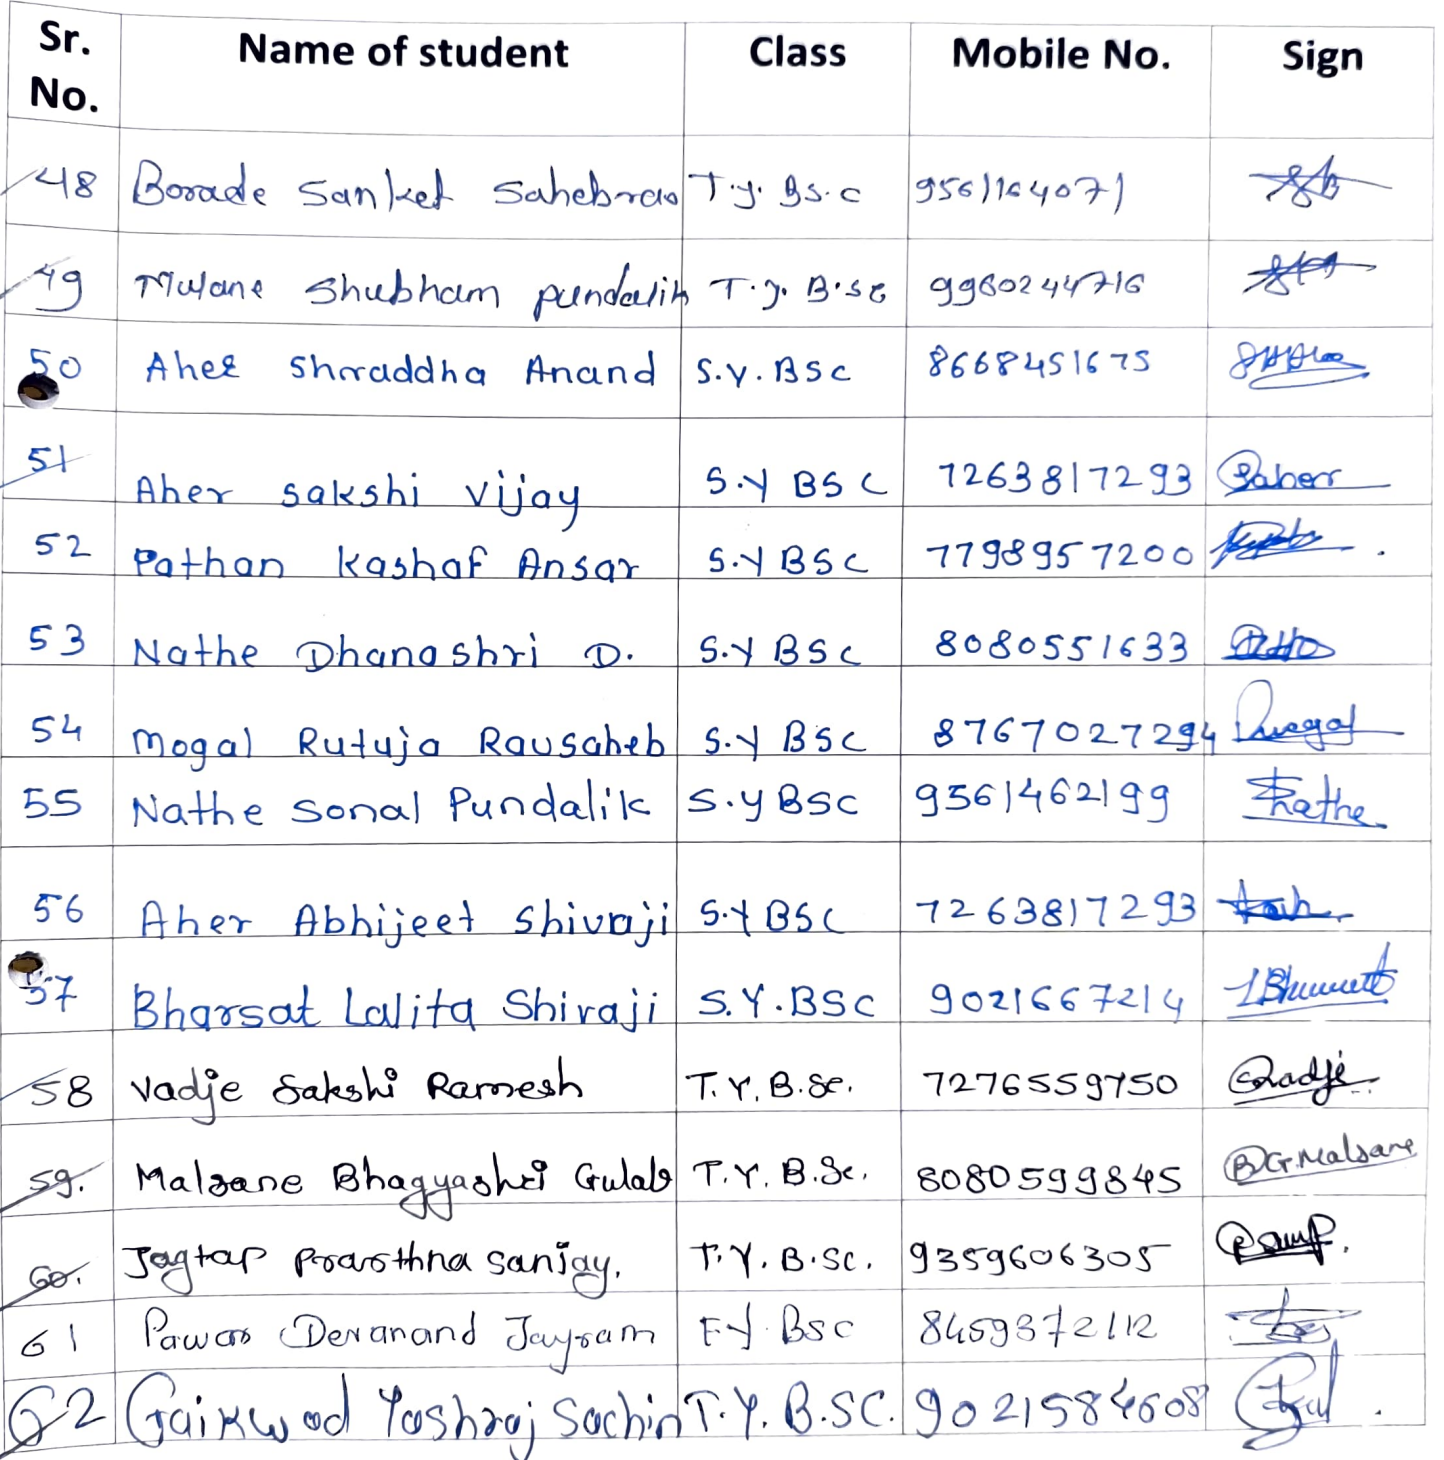 Sr. No. Name of student Class Mobile No. Sign
48 Borade Sanket Sahebrao T.y. Bs.c 9561164071
49 Mulane Shubham pundalik T.y. B.sc 9960244716
50 Aher Shraddha Anand S.y. BSc 8668451675
51 Aher sakshi vijay S.y BSc 7263817293 Saher
52 Pathan Kashaf Ansar S.y BSc 7798957200
53 Nathe Dhanashri D. S.y BSc 8080551633
54 Mogal Rutuja Rausaheb S.y BSc 8767027294
55 Nathe Sonal Pundalik S.y BSc 9561462199 Nathe
56 Aher Abhijeet Shivaji S.y BSc 7263817293
57 Bharsat Lalita Shivaji S.Y.BSc 9021667214
58 Vadje Sakshi Ramesh T.Y.B.Sc. 7276559750 Vadje
59. Malsane Bhagyashri Gulab T.Y.B.Sc. 8080599845 B.G.Malsane
60. Jagtap Prarthna Sanjay. T.Y.B.SC. 9359606305
61 Pawar Devanand Jayram F.y. Bsc 8459372112
62 Gaikwad Yashraj Sachin T.Y.B.SC. 9021584608